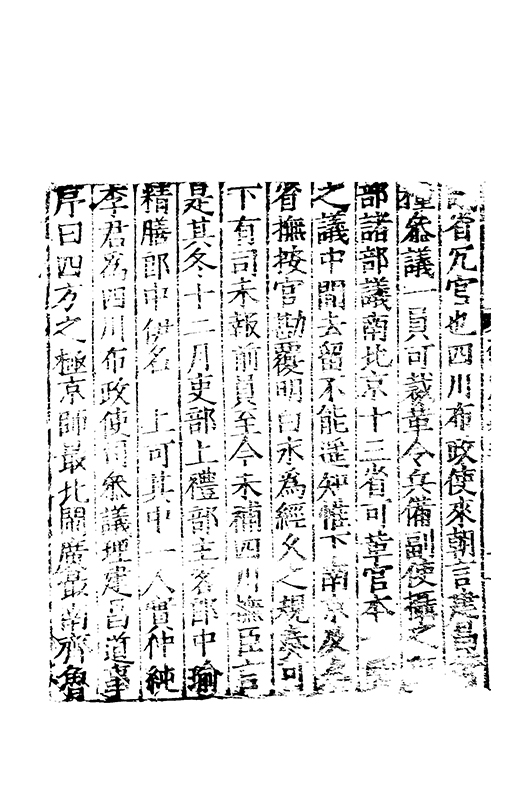 省冗官也四川布政使來朝言建昌
叅議一員可裁革令兵備副使攝之
部諸部議南北京十三省可革官本
之議中間去留不能遥知惟下南京及
省撫按官勘覆明白永爲經久之規奏可
下有司未報前員至今未補四川撫臣言
是其冬十二月吏部上禮部主客郎中瑜
精膳郎中伊名 上可其中一人實仲純
李君爲四川布政使司叅議理建昌道
序曰四方之極京師最北閩廣最南齊魯